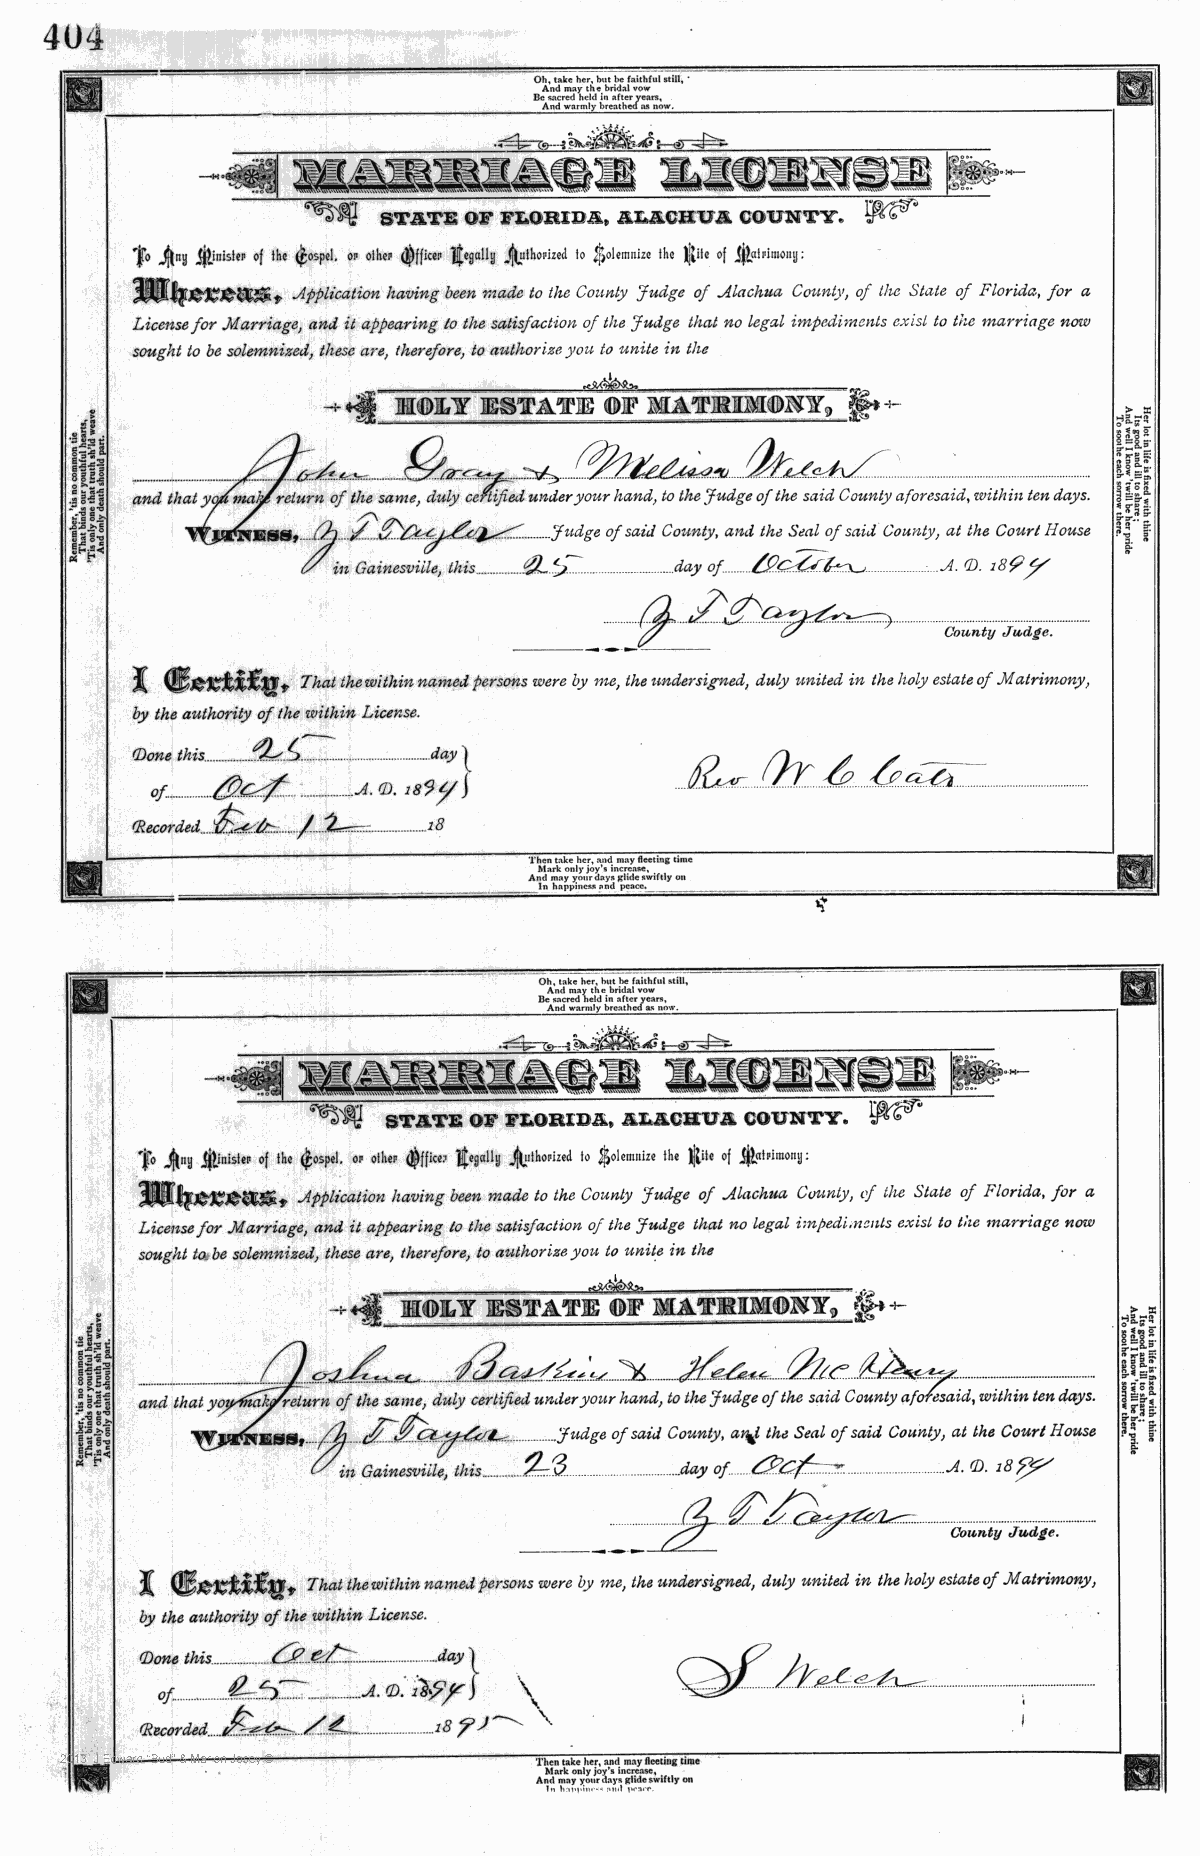 404
Oh, take her, but be faithful still,
And may the bridal vow
Be sacred held in after years,
And warmly breathed as now.
MARRIAGE LICENSE
STATE OF FLORIDA, ALACHUA COUNTY.
To Any Minister of the Gospel, or other Officer Legally Authorized to Solemnize the Rite of Matrimony:
Whereas, Application having been made to the County Judge of Alachua County, of the State of Florida, for a
License for Marriage, and it appearing to the satisfaction of the Judge that no legal impediments exist to the marriage now
sought to be solemnized, these are, therefore, to authorize you to unite in the
HOLY ESTATE OF MATRIMONY,
John Gray & Melissa Welch
and that you make return of the same, duly certified under your hand, to the Judge of the said County aforesaid, within ten days.
WITNESS, Z T Taylor Judge of said County, and the Seal of said County, at the Court House
in Gainesville, this 25 day of October A. D. 1894
Z T Taylor
County Judge.
I Certify, That the within named persons were by me, the undersigned, duly united in the holy estate of Matrimony,
by the authority of the within License.
Done this 25 day
of Oct A. D. 1894
Rev W C Cato
Recorded Feb 12 18
Remember, 'tis no common tie
That binds our youthful hearts,
'Tis only one that truth sh'ld weave
And only death should part.
Her lot in life is fixed with thine
Its good and ill to share;
And well I know 'twill be her pride
To soothe each sorrow there.
Then take her, and may fleeting time
Mark only joy's increase,
And may your days glide swiftly on
In happiness and peace.
Oh, take her, but be faithful still,
And may the bridal vow
Be sacred held in after years,
And warmly breathed as now.
MARRIAGE LICENSE
STATE OF FLORIDA, ALACHUA COUNTY.
To Any Minister of the Gospel, or other Officer Legally Authorized to Solemnize the Rite of Matrimony:
Whereas, Application having been made to the County Judge of Alachua County, of the State of Florida, for a
License for Marriage, and it appearing to the satisfaction of the Judge that no legal impediments exist to the marriage now
sought to be solemnized, these are, therefore, to authorize you to unite in the
HOLY ESTATE OF MATRIMONY,
Joshua Baskins & Helen McHenry
and that you make return of the same, duly certified under your hand, to the Judge of the said County aforesaid, within ten days.
WITNESS, Z T Taylor Judge of said County, and the Seal of said County, at the Court House
in Gainesville, this 23 day of Oct A. D. 1894
Z T Taylor
County Judge.
I Certify, That the within named persons were by me, the undersigned, duly united in the holy estate of Matrimony,
by the authority of the within License.
Done this Oct day
of 25 A. D. 1894
S Welch
Recorded Feb 12 1895
Remember, 'tis no common tie
That binds our youthful hearts,
'Tis only one that truth sh'ld weave
And only death should part.
Her lot in life is fixed with thine
Its good and ill to share;
And well I know 'twill be her pride
To soothe each sorrow there.
Then take her, and may fleeting time
Mark only joy's increase,
And may your days glide swiftly on
In happiness and peace.